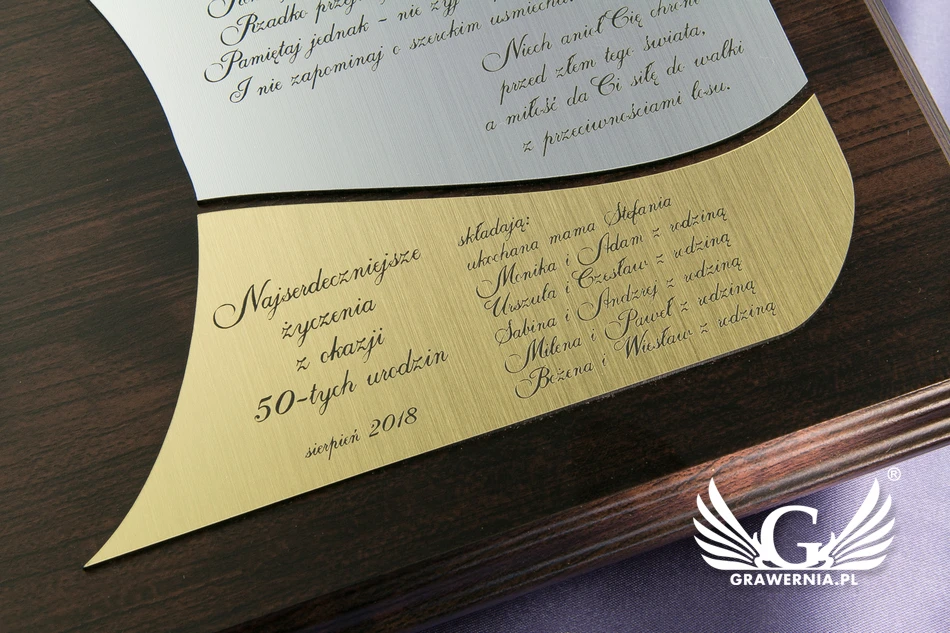 Rzadko
Pamiętaj jednak - nie
I nie zapominaj o szerokim uśmiechu.
Niech anioł Cię chroni
przed złem tego świata,
a miłość da Ci siłę do walki
z przeciwnościami losu.
Najserdeczniejsze
życzenia
z okazji
50-tych urodzin
sierpień 2018
składają:
ukochana mama Stefania
Monika i Adam z rodziną
Urszula i Czesław z rodziną
Sabina i Andrzej z rodziną
Milena i Paweł z rodziną
Bożena i Wiesław z rodziną
G
®
GRAWERNIA.PL